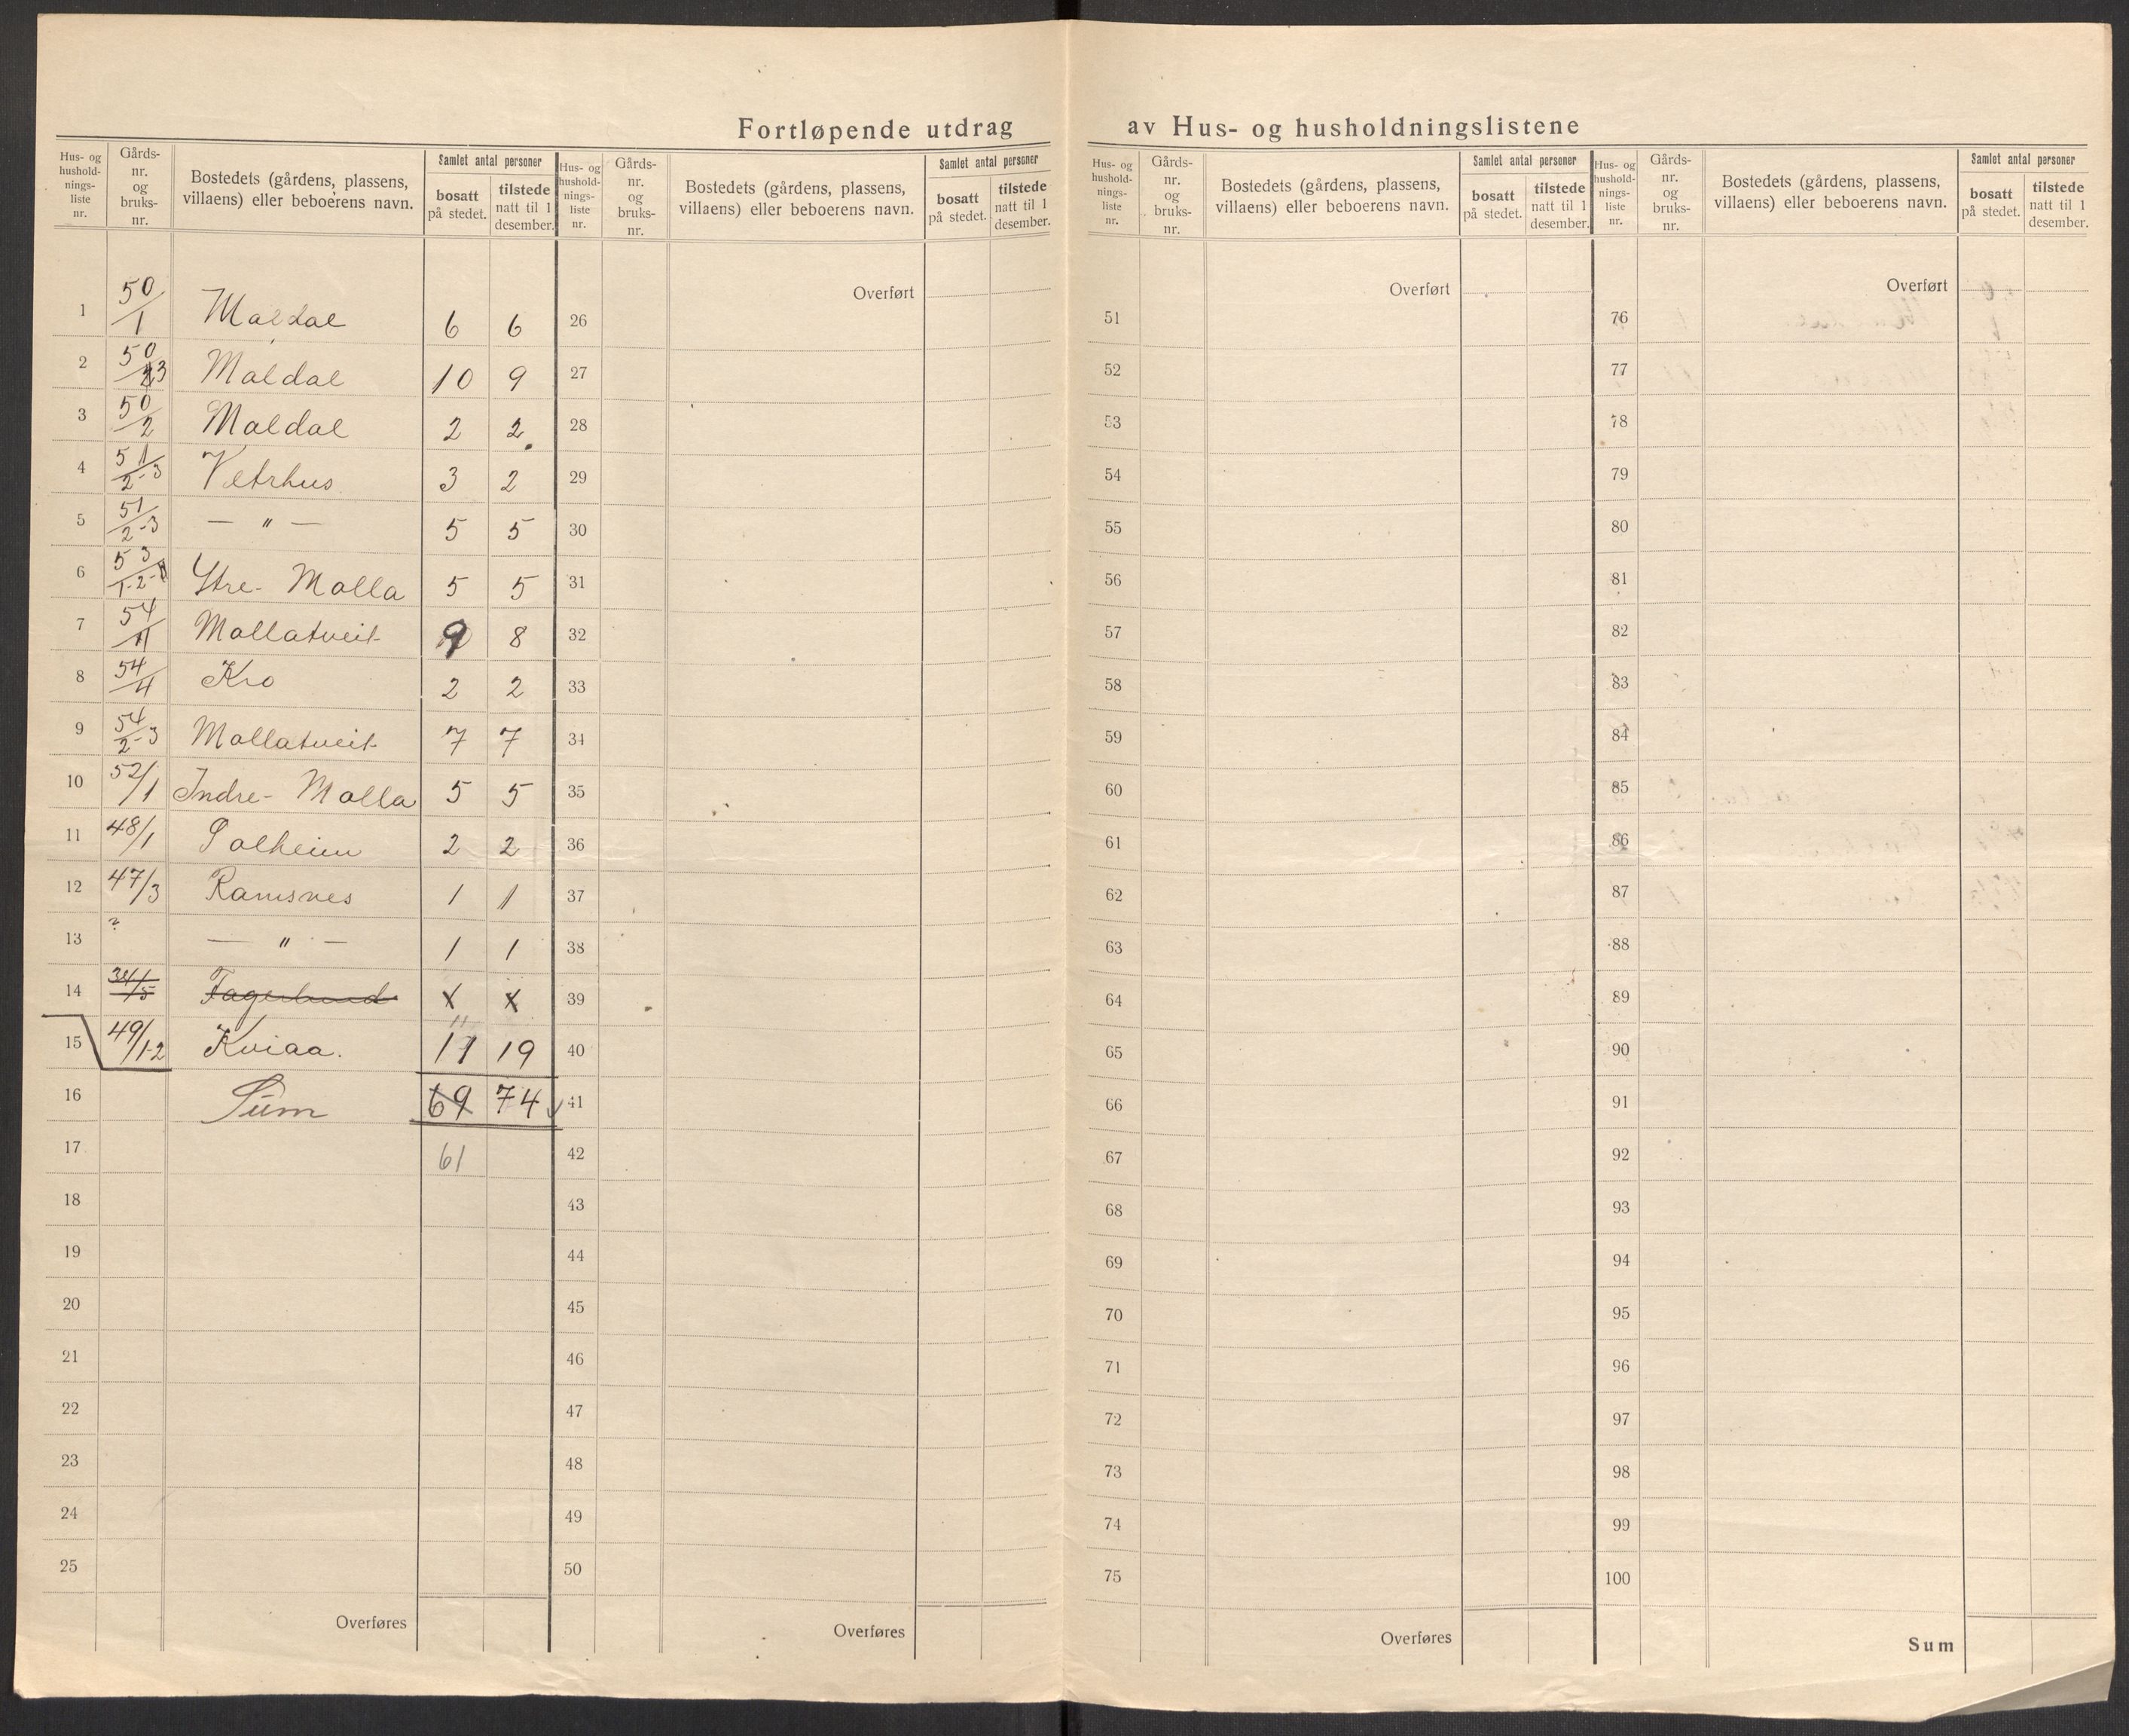 Fortløpende utdrag av Hus- og husholdningslistene
Hus- og hushold-nings-liste nr. Gårds-nr. og bruks-nr. Bostedets (gårdens, plassens, villaens) eller beboerens navn. Samlet antal personer bosatt på stedet. tilstede natt til 1 desember.
Hus- og hushold-nings-liste nr. Gårds-nr. og bruks-nr. Bostedets (gårdens, plassens, villaens) eller beboerens navn. Samlet antal personer bosatt på stedet. tilstede natt til 1 desember.
Hus- og hushold-nings-liste nr. Gårds-nr. og bruks-nr. Bostedets (gårdens, plassens, villaens) eller beboerens navn. Samlet antal personer bosatt på stedet. tilstede natt til 1 desember.
Hus- og hushold-nings-liste nr. Gårds-nr. og bruks-nr. Bostedets (gårdens, plassens, villaens) eller beboerens navn. Samlet antal personer bosatt på stedet. tilstede natt til 1 desember.
1 50/1 Maldal 6 6
2 50/3 Maldal 10 9
3 50/2 Maldal 2 2
4 51/2-3 Vetrhus 3 2
5 51/2-3 — " — 5 5
6 53/1-2- Ytre- Molla 5 5
7 54/ Mollatveit 9 8
8 54/4 Kro 2 2
9 54/2-3 Mollatveit 7 7
10 52/1 Indre- Molla 5 5
11 48/1 Solheim 2 2
12 47/3 Ramsnes 1 1
13 ? — " — 1 1
14 34/5 Fagerlund x x
11
15 49/1-2 Kviaa. 11 19
16 Sum 69 74
17 61
18
19
20
21
22
23
24
25
Overføres
Overført
26
27
28
29
30
31
32
33
34
35
36
37
38
39
40
41
42
43
44
45
46
47
48
49
50
Overføres
Overført
51
52
53
54
55
56
57
58
59
60
61
62
63
64
65
66
67
68
69
70
71
72
73
74
75
Overføres
Overført
76
77
78
79
80
81
82
83
84
85
86
87
88
89
90
91
92
93
94
95
96
97
98
99
100
Sum